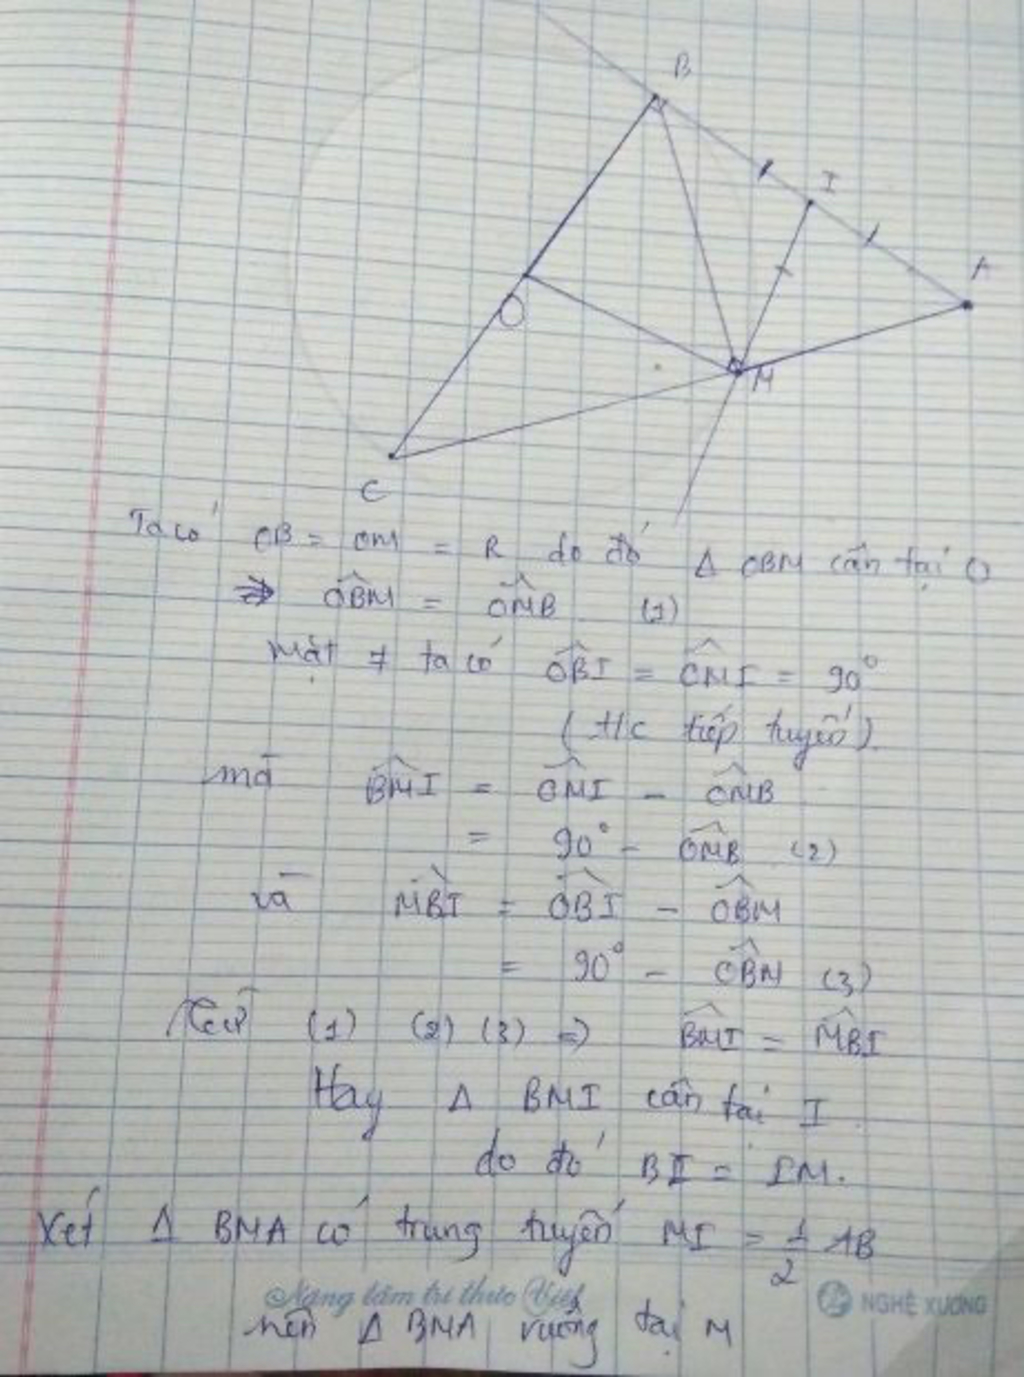 B
I
A
O
M
C
Ta có OB = OM = R do đó Δ OBM cân tại O
=> OBM = OMB (1)
Mặt ≠ ta có OBI = OMI = 90°
(t/c tiếp tuyến)
mà BMI = OMI - OMB
= 90° - OMB (2)
và MBI = OBI - OBM
= 90° - OBM (3)
Từ (1) (2) (3) => BMI = MBI
Hay Δ BMI cân tại I
do đó BI = IM.
Xét Δ BMA có trung tuyến MI = 1/2 AB
Nâng tầm tri thức Việt NGHÊ XƯƠNG
nên Δ BMA vuông tại M